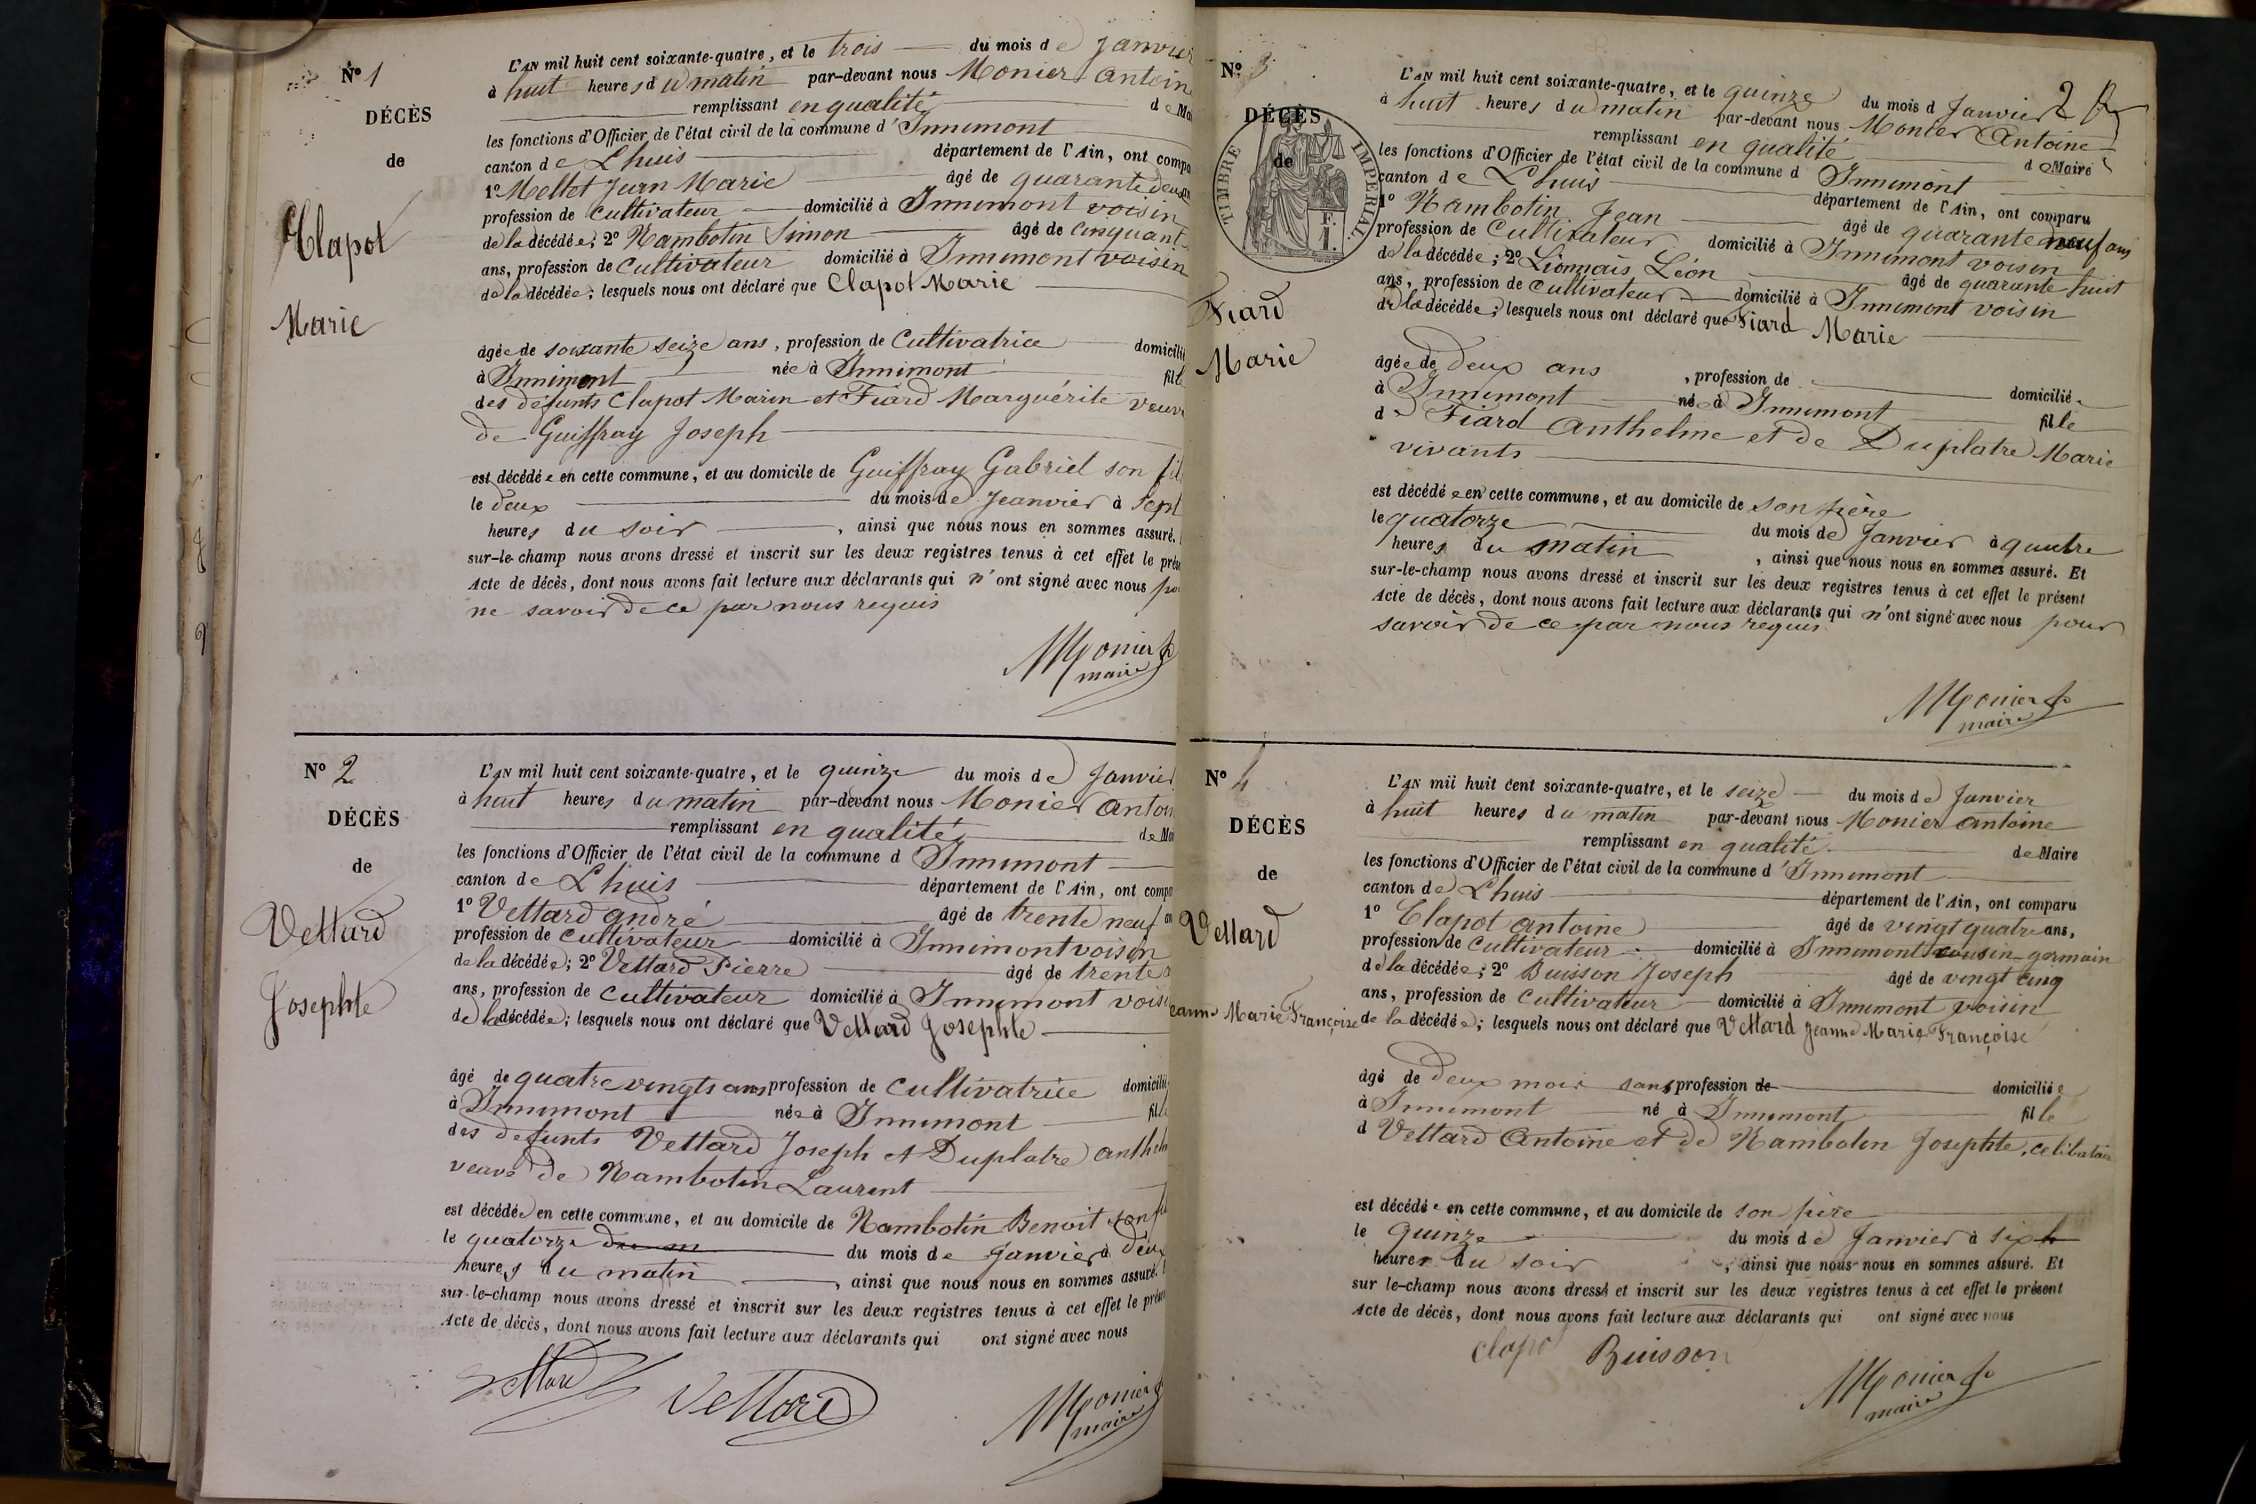 Nº 1
DÉCÈS
de
Clapot
Marie
L'AN mil huit cent soixante-quatre, et le trois du mois de Janvier
à huit heures du matin par-devant nous Monier Antoine
remplissant en qualité de
les fonctions d'Officier de l'état civil de la commune d'Innimont
canton de Lhuis département de l'Ain, ont
1º Mellet Jean Marie âgé de quarante deux
profession de Cultivateur domicilié à Innimont voisin
de la décédée; 2º Nambotin Simon âgé de cinquante
ans, profession de Cultivateur domicilié à Innimont voisin
de la décédée; lesquels nous ont déclaré que Clapot Marie
âgée de soixante seize ans, profession de Cultivatrice
à Innimont née à Innimont
des défunts Clapot Marin et Fiard Marguérite veuve
de Guiffray Joseph
est décédée en cette commune, et au domicile de Guiffray Gabriel son
le deux du mois de Jeanvier à Sept
heures du soir, ainsi que nous nous en sommes assuré.
sur-le-champ nous avons dressé et inscrit sur les deux registres tenus à cet effet le
Acte de décès, dont nous avons fait lecture aux déclarants qui n'ont signé avec nous
ne savoir de ce par nous requis
Monier
maire
Nº 2
DÉCÈS
de
Vettard
Josephte
L'AN mil huit cent soixante-quatre, et le quinze du mois de Janvier
à huit heures du matin par-devant nous Monier
remplissant en qualité de
les fonctions d'Officier de l'état civil de la commune d Innimont
canton de Lhuis département de l'Ain, ont
1º Vettard André âgé de trente neuf
profession de cultivateur domicilié à Innimont voisin
de la décédée; 2º Vettard Pierre âgé de trente
ans, profession de Cultivateur domicilié à Innimont
de la décédée; lesquels nous ont déclaré que Vettard Josephte
âgé de quatre vingts ans profession de Cultivatrice
à Innimont née à Innimont
des defunts Vettard Joseph et Duplatre
veuve de Nambotin Laurent
est décédée en cette commune, et au domicile de Nambotin Benoit son
le quatorze du mois de Janvier à
heures du matin, ainsi que nous nous en sommes assuré.
sur-le-champ nous avons dressé et inscrit sur les deux registres tenus à cet effet le
Acte de décès, dont nous avons fait lecture aux déclarants qui ont signé avec nous
Vettard Vettard
Monier
maire
2
Nº 3
DÉCÈS
de
TIMBRE IMPERIAL
Fiard
Marie
L'AN mil huit cent soixante-quatre, et le quinze du mois d Janvier
à huit heures du matin par-devant nous Monier Antoine
remplissant en qualité de Maire
les fonctions d'Officier de l'état civil de la commune d Innimont
canton de Lhuis département de l'Ain, ont comparu
1º Nambotin Jean âgé de quarante neuf ans
profession de Cultivateur domicilié à Innimont voisin
de la décédée; 2º Lionnais Léon âgé de quarante huit
ans, profession de Cultivateur domicilié à Innimont voisin
de la décédée; lesquels nous ont déclaré que Fiard Marie
âgée de deux ans, profession de domiciliée
à Innimont née à Innimont fille
de Fiard Anthelme et de Duplatre Marie
vivants
est décédée en cette commune, et au domicile de son père
le quatorze du mois de Janvier à quatre
heures du matin, ainsi que nous nous en sommes assuré. Et
sur-le-champ nous avons dressé et inscrit sur les deux registres tenus à cet effet le présent
Acte de décès, dont nous avons fait lecture aux déclarants qui n'ont signé avec nous pour
savoir de ce par nous requis
Monier
maire
Nº 4
DÉCÈS
de
Vettard
Jeanne Marie Françoise
L'AN mil huit cent soixante-quatre, et le seize du mois de Janvier
à huit heures du matin par-devant nous Monier Antoine
remplissant en qualité de Maire
les fonctions d'Officier de l'état civil de la commune d'Innimont
canton de Lhuis département de l'Ain, ont comparu
1º Clapot Antoine âgé de vingt quatre ans,
profession de Cultivateur domicilié à Innimont cousin germain
de la décédée; 2º Buisson Joseph âgé de vingt cinq
ans, profession de Cultivateur domicilié à Innimont voisin
de la décédée; lesquels nous ont déclaré que Vettard Jeanne Marie Françoise
âgé de deux mois sans profession de domiciliée
à Innimont né à Innimont fille
d Vettard Antoine et de Nambotin Josephte, celibataire
est décédée en cette commune, et au domicile de son père
le quinze du mois de Janvier à six
heures du soir, ainsi que nous nous en sommes assuré. Et
sur le-champ nous avons dressé et inscrit sur les deux registres tenus à cet effet le présent
Acte de décès, dont nous avons fait lecture aux déclarants qui ont signé avec nous
Clapot Buisson
Monier
maire